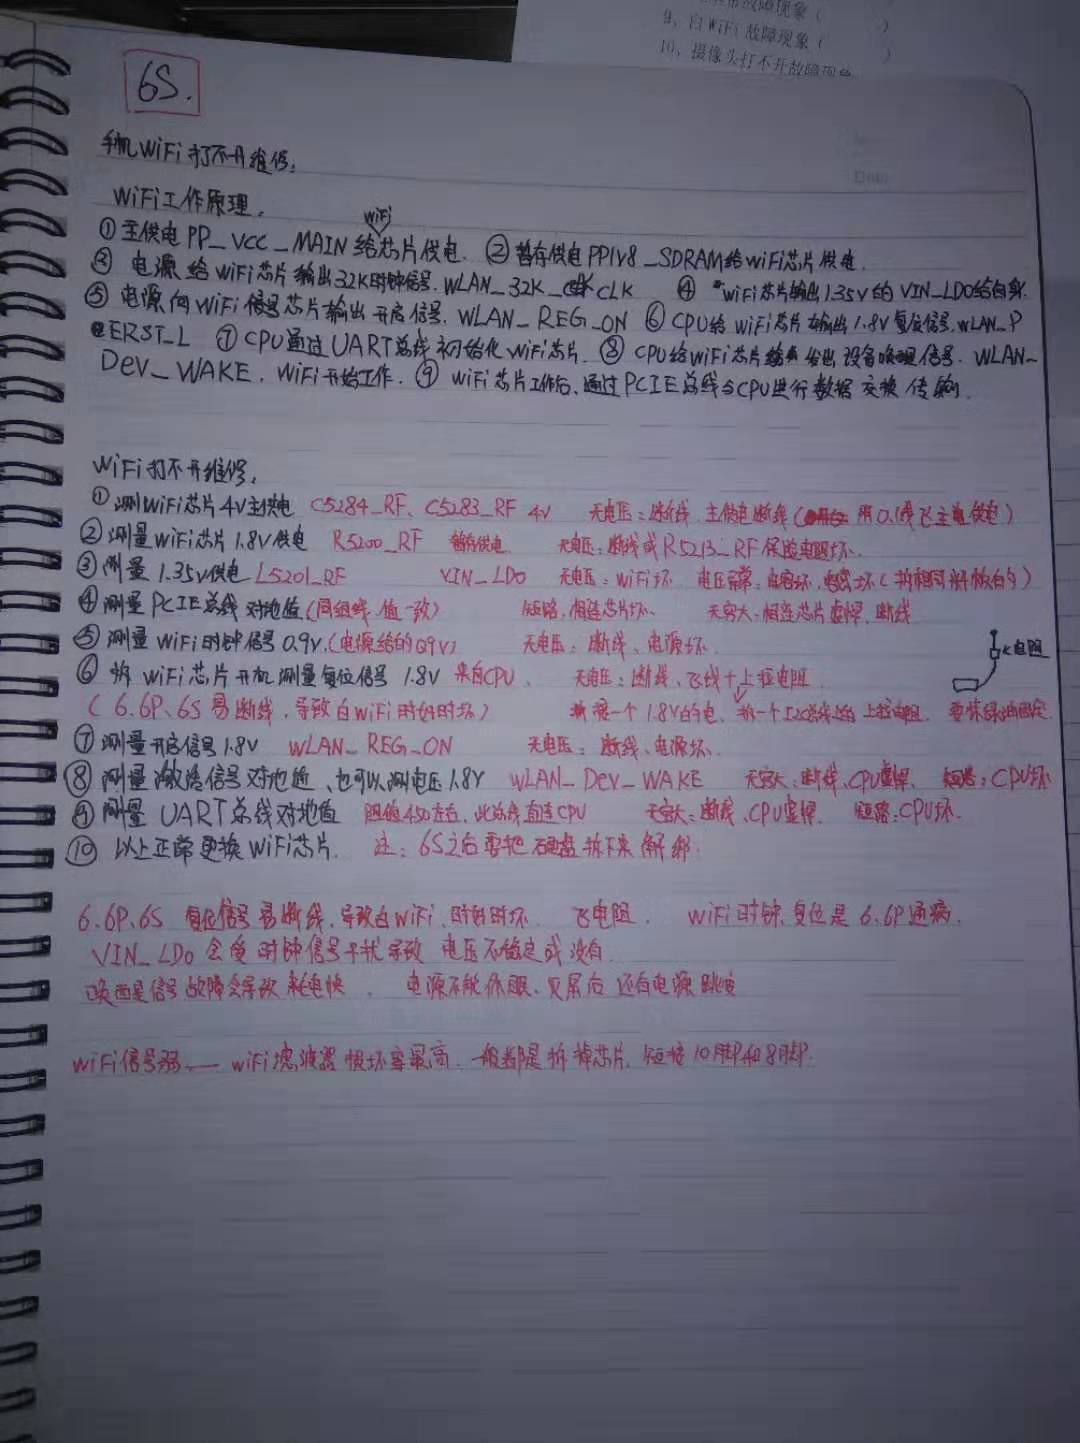 障现象（　　）
9、白WiFi故障现象（　　）
10、摄像头打不开故障现象
6S.
Date
手机WiFi打不开维修;
WiFi工作原理,
WiFi
①主供电 PP_VCC_MAIN 给芯片供电. ②暂存供电PP1V8_SDRAM给WiFi芯片供电.
③ 电源给WiFi芯片输出32K时钟信号. WLAN_32K_CLK ④ WiFi芯片输出1.35V的 VIN_LDO给自身.
⑤ 电源向WiFi芯片输出开启信号. WLAN_REG_ON ⑥CPU给WiFi芯片输出1.8V复位信号. WLAN_P
ERST_L ⑦ CPU通过UART总线初始化WiFi芯片. ⑧ CPU给WiFi芯片发出设备唤醒信号. WLAN_
Dev_WAKE. WiFi开始工作. ⑨ WiFi芯片工作后, 通过PCIE总线与CPU进行数据交换传输.
WiFi打不开维修,
① 测WiFi芯片4V主供电 C5284_RF、C5283_RF 4V 无电压:断线 主供电断线( 用0.1线飞主电供电)
② 测量WiFi芯片1.8V供电 R5200_RF 暂存供电 无电压:断线或R5213_RF保险电阻坏.
③ 测量1.35V供电 L5201_RF VIN_LDO 无电压: WiFi坏 电压异常: 电容坏,电感坏(拆相同阻值的)
④ 测量PCIE总线对地值(同组线值一致) 短路, 相连芯片坏. 无穷大:相连芯片虚焊, 断线
⑤ 测量WiFi时钟信号0.9V.(电源给的0.9V) 无电压: 断线、电源坏.
K电阻
⑥ 拆WiFi芯片开机测量复位信号1.8V 来自CPU. 无电压: 断线、飞线+上拉电阻
(6.6P、6S易断线, 导致白WiFi时好时坏) 接一个1.8V的电. 拆一个I2C总线的上拉电阻.
⑦ 测量开启信号1.8V WLAN_REG_ON 无电压: 断线、电源坏.
⑧ 测量激活信号对地值、也可以测电压1.8V WLAN_Dev_WAKE 无穷大:断线、CPU虚焊. 短路: CPU坏
⑨ 测量UART总线对地值 阻值450左右, 此总线直连CPU 无穷大: 断线、CPU虚焊. 短路:CPU坏.
⑩ 以上正常更换WiFi芯片. 注: 6S之后需把硬盘拆下来解绑.
6.6P、6S 复位信号易断线, 导致白WiFi, 时好时坏. 飞电阻. WiFi时钟、复位是6.6P通病.
VIN_LDO会受时钟信号干扰导致电压不稳定或没有.
唤醒信号故障会导致耗电快. 电源不能休眠、灭屏后还有电源跳变
WiFi信号弱— WiFi滤波器损坏率最高. 一般都是拆掉芯片, 短接10脚和8脚.